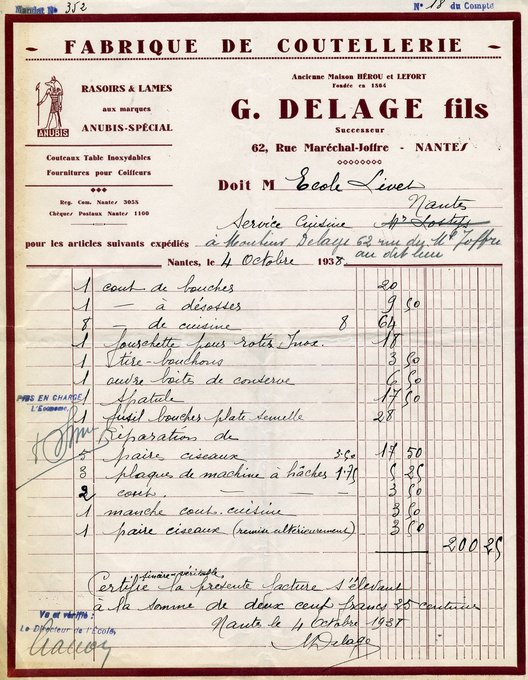 Mandat No 352
No 18 du Compte
- FABRIQUE DE COUTELLERIE -
RASOIRS & LAMES
aux marques
ANUBIS-SPÉCIAL
ANUBIS
Couteaux Table Inoxydables
Fournitures pour Coiffeurs
Reg. Com. Nantes 3058
Chèques Postaux Nantes 1100
Ancienne Maison HÉROU et LEFORT
Fondée en 1864
G. DELAGE fils
Successeur
62, Rue Maréchal-Joffre - NANTES
Doit M Ecole Livet
Nantes
Service Cuisine
pour les articles suivants expédiés à Monsieur Delage 62 rue du Mal Joffre
au dit lieu
Nantes, le 4 Octobre 1938
1 cout de bouchers 20
1 — à désosser 9 50
8 — de cuisine 8 64
1 fourchette pour rotis Inox. 18
1 tire-bouchons 3 50
1 ouvre boites de conserve 6 50
1 spatule 17 50
1 fusil boucher plate semelle 28
Réparation de
5 paire ciseaux 3.50 17 50
3 plaques de machine à hâcher 1.75 5 25
2 cout. — — — 3 50
1 manche cout. cuisine 3 50
1 paire ciseaux (remise ultérieurement) 3 50
200 25
PRIS EN CHARGE
L'Econome,
sincère - véritable
Certifie la présente facture s'élevant
à la somme de deux cent francs 25 centimes
Nantes le 4 Octobre 1938
Vu et vérifié :
Le Directeur de l'École,
Delage